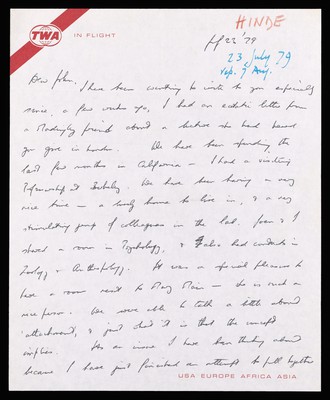 TWA IN FLIGHT
HINDE
July 23 '79
23 July 79
rep. 7 Aug.
Dear John,
I have been wanting to write to you especially
since, a few weeks ago, I had an ecstatic letter from
a Madingley friend about a lecture she had heard
you give in London. We have been spending the
last few months in California – I had a visiting
Professorship at Berkeley. We have been having a very
nice time – a lovely home to live in, & a very
stimulating group of colleagues in the lab. Joan & I
shared a room in Psychology, & I also had contacts in
Zoology & Anthropology. It was a special pleasure to
have a room next to Mary Main – she is such a
nice person. We were able to talk a little about
'attachment', & just what it is that the concept
implies. It's an issue I have been thinking about
because I have just finished an attempt to pull together
USA EUROPE AFRICA ASIA